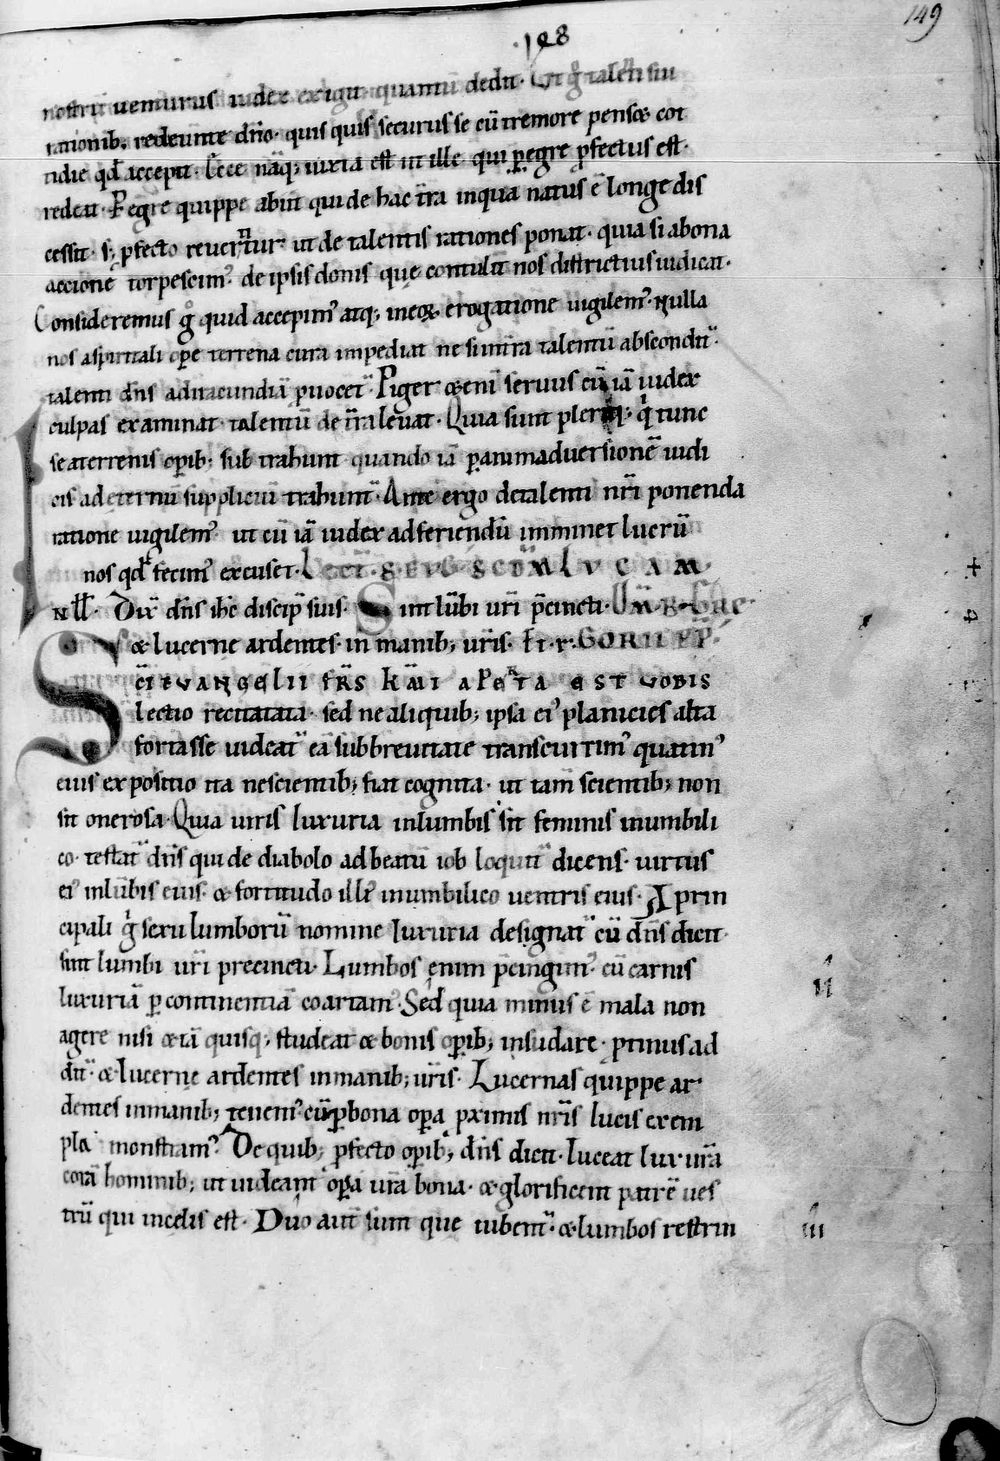 149
·148
nostrū uenturus iudex exigit quantū dedit. Vt g̊ talēti sui
rationib; redeunte dn̄o. quis quis securus se cū tremore penset cot
tidie qd̄ accepit. Ecce nāq; iuxta est ut ille qui p̱egre ꝓfectus est.
redeat. Pegre quippe abiit qui de hac t̄ra in qua natus ē longe dis
cessit. s; ꝓfecto reuertitur ut de talentis rationes ponat. quia si a bona
accione torpescim᾽ de ipsis donis que contulit nos districtius iudicat.
Consideremus g̊ quid accepim᾽ atq; in eoꝝ erogatione uigilem᾽. Nulla
nos a spiritali oꝑe terrena cura impediat ne si in t̄ra talentū abscondit᾽.
talenti dn̄s ad iracundiā ꝓuocet᾽. Piger &enī seruus cū iā iudex
culpas examinat talentū de t̄ra leuat. Quia sunt pleriq; q̇ tunc
se a terrenis oꝑib; sub trahunt quando iā ꝑ animaduersionē iudi
cis ad eternū suppliciū trahunt᾽. Ante ergo de talenti nr̄i ponenda
ratione uigilem᾽ ut cū iā iudex ad feriendū imminet lucrū
nos qd̄ fecim᾽ excuset. Lect̄. s euḡ scd̄m Lvcam.
In ill̄. Dix̄ dn̄s ih̄c discip̄ suis. Sint lūbi ur̄i p̄cincti.
& lucerne ardentes in manib; ur̄is. &̄ r̄.
sc̄i euangelii fr̄s km̄i aperta est uobis
lectio recitata. sed ne aliquib; ipsa ei᾽ planicies alta
fortasse uideat᾽ eā sub breuitate transcurrim᾽ quatin᾽
eius expositio ita nescientib; fiat cognita. ut tam̄ scientib; non
sit onerosa. Quia uiris luxuria in lumbis sit feminis in umbili
co. testat᾽ dn̄s qui de diabolo ad beatū iob loquit᾽ dicens. uirtus
ei᾽ in lūbis eius. & fortitudo illi᾽ in umbilico uentris eius. A prin
cipali g̊ sexu lumborū nomine luxuria designat᾽ cū dn̄s dicit.
sint lumbi ur̄i precincti. Lumbos enim p̄cingim᾽ cū carnis
luxuriā ꝑ continentiā coartam᾽. Sed quia minus ē mala non
agere nisi &iā quisq; studeat & bonis oꝑib; insudare. ꝓtinus ad
dit᾽ & lucerne ardentes in manib; ur̄is. Lucernas quippe ar
dentes in manib; tenem᾽ cū ꝑ bona oꝑa ꝓximis nr̄is lucis exem
pla monstram᾽. De quib; ꝓfecto oꝑib; dn̄s dicit. luceat lux ur̄a
corā hominib; ut uideant oꝑa ur̄a bona. & glorificent patrē ues
trū qui in celis est. Duo aut̄ sunt que iubent᾽. & lumbos restrin
ii
iii